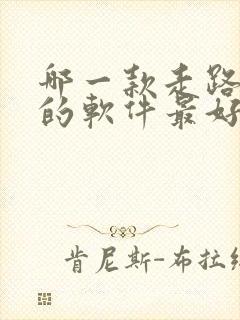 哪一款走路
的軟件最好
肯尼斯-布拉